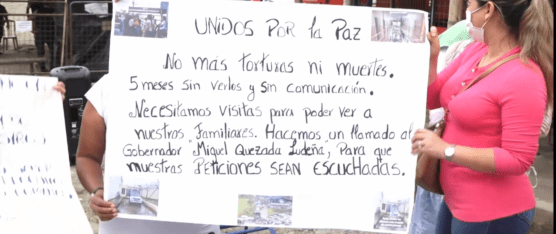 UNIDOS POR la PAZ
No más torturas ni muertes.
5 meses sin verlos y sin comunicación.
Necesitamos visitas para poder ver a
nuestros familiares. Hacemos un llamado al
Gobernador "Miguel Quezada Ludeña", Para que
nuestras PETICIONES SEAN ESCUCHADAS.